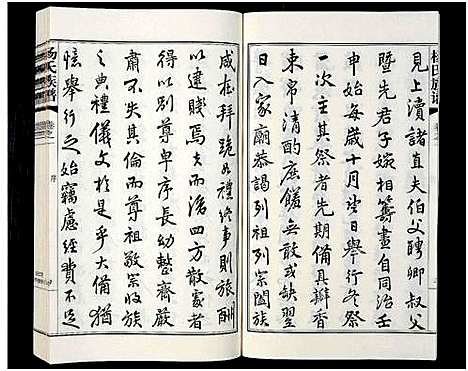 楊氏族譜
見上瀆諸直夫伯父聘卿叔父
暨先君子婉相籌畫自同治壬
申始每歲十月望日舉行冬祭
一次主其祭者先期備具瓣香
東帛清酌庶饈無或缺翌
日入家廟恭謁列祖列宗闔族
咸在拜跪如禮終事則旅酬
以逮賤焉夫而後四方散處者
得以別尊卑序長幼整齊嚴
肅不失其倫而尊祖敬宗收族
之典禮儀文於是乎大備猶
憶舉行之始竊慮經費不足
楊氏族譜
序